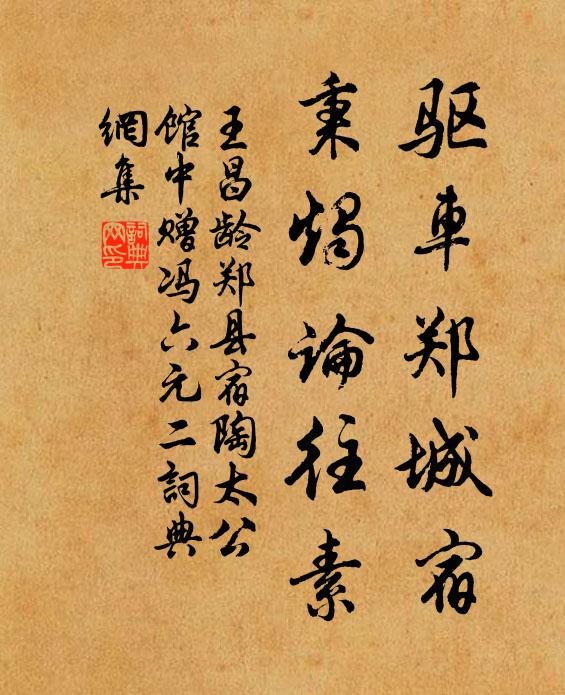 驱車郑城宿
秉燭論往素
王昌龄郑县宿陶太公
馆中赠冯六元二詞典
網集
詞典
网印